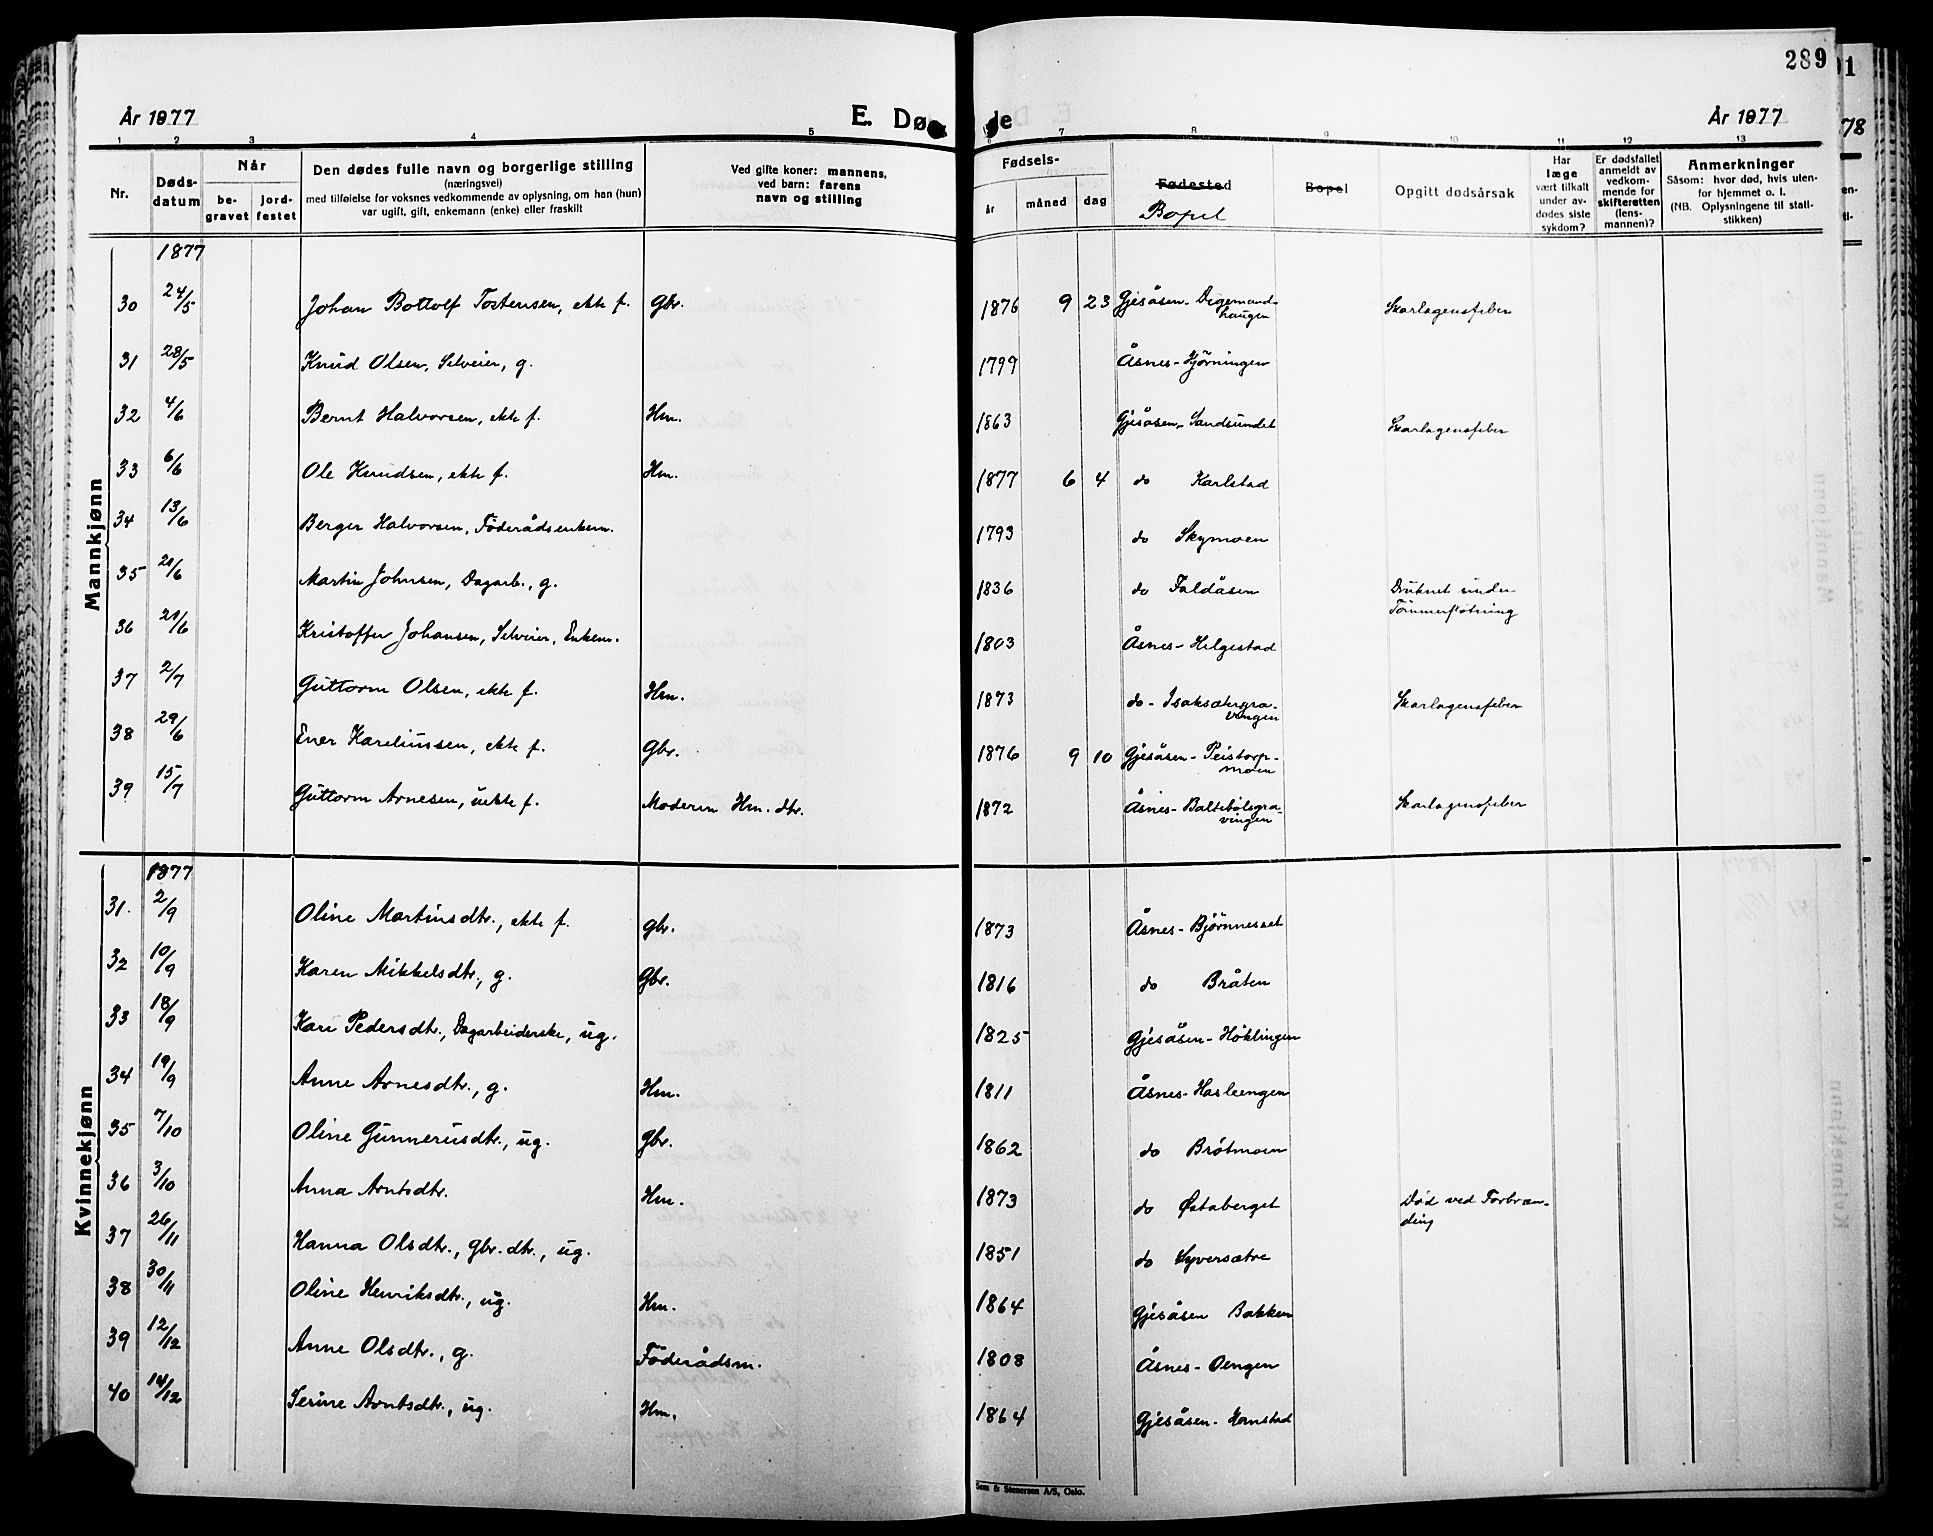 289
År 1877
E. Dø
de
År 1877
78
1 2 3 4 5 6 7 8 9 10 11 12 13
Nr.
Døds-
datum
Når
be-
gravet
jord-
festet
Den dødes fulle navn og borgerlige stilling
(næringsvei)
med tilføielse for voksnes vedkommende av oplysning, om han (hun)
var ugift, gift, enkemann (enke) eller fraskilt
Ved gifte koner: mannens,
ved barn: farens
navn og stilling
Fødsels-
år
måned
dag
Fødested
Bopel
Bopel
Opgitt dødsårsak
Har
læge
vært tilkalt
under av-
dødes siste
sykdom?
Er dødsfallet
anmeldt av
vedkom-
mende for
skifteretten
(lens-
mannen)?
Anmerkninger
Såsom: hvor død, hvis uten-
for hjemmet o. l.
(NB. Oplysningene til stati-
stikken)
Mannkjønn
1877
30 24/5 Johan Bottolf Tostensen, ekte f. Gbr. 1876 9 23 Gjesåsen- Degemand-
haugen Skarlagensfeber
31 28/5 Knud Olsen, Selveier, g. 1799 Åsnes- Hjørningen
32 4/6 Bernt Halvorsen, ekte f. Hm. 1863 Gjesåsen- Sandsundet Skarlagensfeber
33 6/6 Ole Knudsen, ekte f. Hm. 1877 6 4 do Karlstad
34 13/6 Berger Halvorsen, Föderådsenkem. 1793 do Skymoen
35 20/6 Martin Johnsen, Dagarb., g. 1836 do Faldåsen Druknet under
Tömmerfløtning
36 21/6 Kristoffer Johansen, Selveier, Enkem. 1803 Åsnes- Helgestad
37 2/7 Guttorm Olsen, ekte f. Hm. 1873 do- Isaksætergra-
vingen Skarlagensfeber
38 29/6 Ener Kareliussen, ekte f. Gbr. 1876 9 10 Gjesåsen- Peistorp-
moen
39 15/7 Guttorm Arnesen, uekte f. Moderen Hm. dtr. 1872 Åsnes- Baltebölsgra-
vingen Skarlagensfeber
Kvinnekjønn
1877
31. 2/9 Oline Martinsdtr., ekte f. Gbr. 1873 Åsnes- Björnnesset
32 10/9 Karen Mikkelsdtr., g. Gbr. 1816 do Bråten
33 18/9 Kari Pedersdtr., Dagarbeiderske, ug. 1825 Gjesåsen- Höklingen
34 19/9 Anne Arnesdtr., g. Hm. 1811 Åsnes- Hasleengen
35 7/10 Oline Gunnerusdtr., ug. Gbr. 1862 do Bråtmoen
36 3/10 Anna Arntsdtr. Hm. 1873 do Østaberget Död ved Forbræn-
ding
37 26/11 Hanna Olsdtr., Gbr. dtr., ug. 1851 do Syversætre
38 30/11 Oline Henriksdtr., ug. Hm. 1864 Gjesåsen Bakken
39 12/12 Anne Olsdtr., g. Föderådsm. 1808 Åsnes- Oengen
40 14/12 Serine Arntsdtr., ug. Hm. 1864 Gjesåsen- Kamstad
Sem & Stenersen A/S, Oslo.